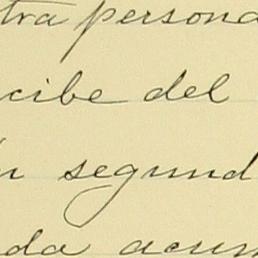 tra persona
cibe del
n segund
da acum